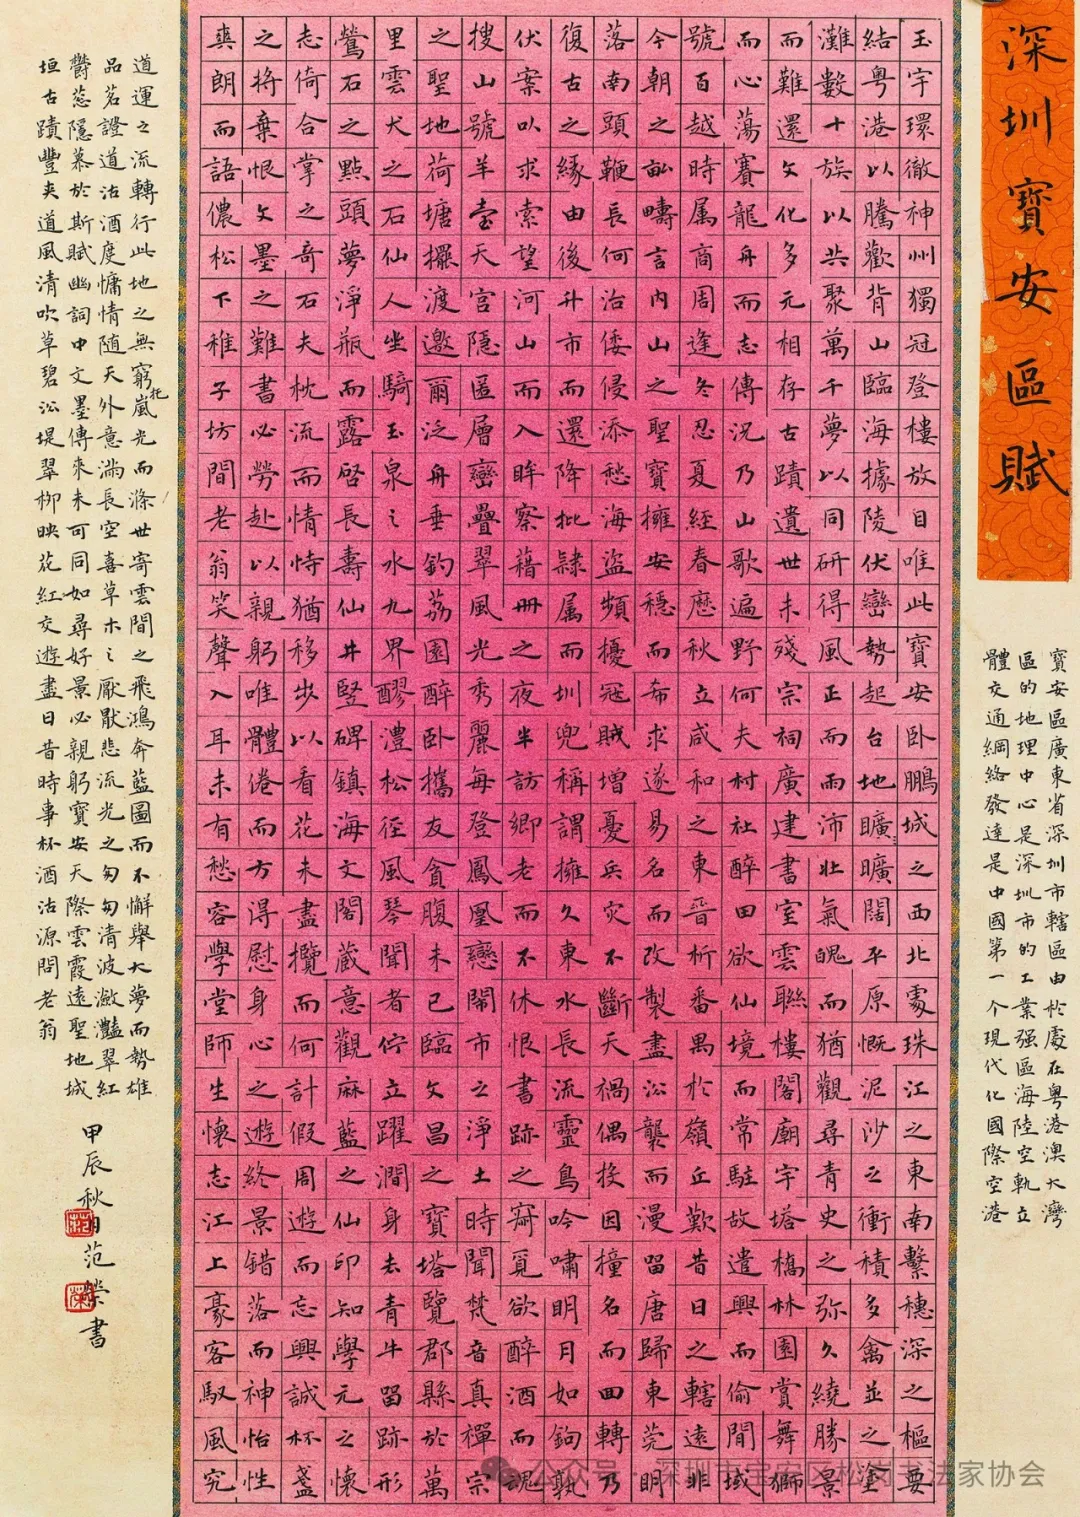 深圳寶安區賦
寶安區廣東省深圳市轄區由於處在粵港澳大灣
區的地理中心是深圳市的工業强區海陸空軌立
體交通網絡發達是中國第一个現代化國際空港
玉宇環徹神州獨冠登樓放目唯此寶安卧鵬城之西北處珠江之東南繫穗深之樞要
結粵港以騰歡背山臨海據陵伏巒勢起台地曠曠闊平原慨泥沙之衝積多禽並之奎
灘數十族以共聚萬千夢以同研得風正而雨沛壯氣魄而猶觀尋青史之弥久繞勝景
而難還文化多元相存古蹟遺世未殘宗祠廣建書室雲聯樓閣廟宇塔橋林園賞舞獅
而心蕩賽龍舟而志傳況乃山歌遍野何夫村社醉田欲仙境而常駐故遣興而偷閒域
號百越時属商周逢冬忍夏經春歷秋立咸和之東晉析番禺於嶺丘歎昔日之轄遠非
今朝之畝疇言内山之聖寶擁安穩而希求遂易名而改製盡沿襲而漫留唐歸東莞明
落南頭鞭長何治倭侵添愁海盜頻擾冠賊增憂兵灾不斷天禍偶投因撞名而回轉乃
復古之緣由後升市而還降批隷属而圳兜稱謂擁久東水長流靈鳥吟嘯明月如鉤孰
伏案以求索望河山而入眸察藉册之夜半訪鄉老而不休恨書跡之窮覓欲醉酒而魂
搜山號羊臺天宫隱匿層巒疊翠風光秀麗每登鳳凰戀鬧市之淨土時聞梵音真禪宗
之聖地荷塘擺渡邀爾泛舟垂釣荔園醉卧攜友貪腹未已臨文昌之寶塔覽郡縣於萬
里雲犬之石仙人坐騎玉泉之水九界醪澧松徑風琴聞者佇立躍澗身去青牛留跡形
鶯石之點頭夢淨瓶而露啓長壽仙井竪碑鎮海文閣藏意觀麻藍之仙印知學元之懷
志倚合掌之奇石夫枕流而情恃猶移步以看花未盡攬而何計假周遊而忘興誠杯盞
之將棄恨文墨之難書必勞赴以親躬唯體倦而方得慰身心之遊終景錯落而神怡性
爽朗而語儂松下稚子坊間老翁笑聲入耳未有愁容學堂師生懷志江上豪客馭風究
道運之流轉行此地之無窮托嵐光而滌世寄雲間之飛鴻奔藍圖而不懈舉大夢而勢雄
品茗證道沽酒度慵情随天外意满長空喜草木之厭厭悲流光之匆匆清波瀲灩翠紅
欝葱隱慕於斯賦幽詞中文墨傳來未可同如尋好景必親躬寶安天際雲霞遠聖地城
垣古蹟豐夾道風清吹草碧沿堤翠柳映花紅交遊盡日昔時事杯酒沽源問老翁
甲辰秋日范榮書
公众号·深圳市宝安区松岗书法家协会